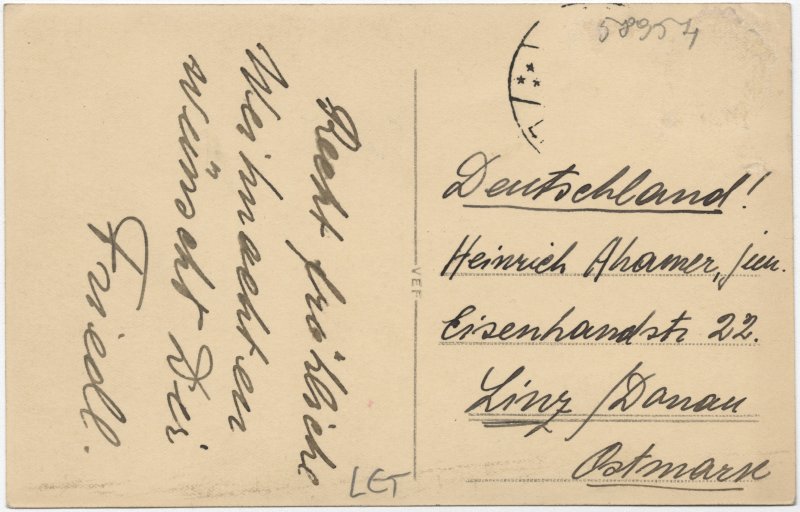 Recht fröhliche
Weihnachten
wünscht Dir
Friedl.
58954
Deutschland!
Heinrich Ahamer, jun.
Eisenhandstr. 22.
Linz /Donau
Ostmark
VEF
LET